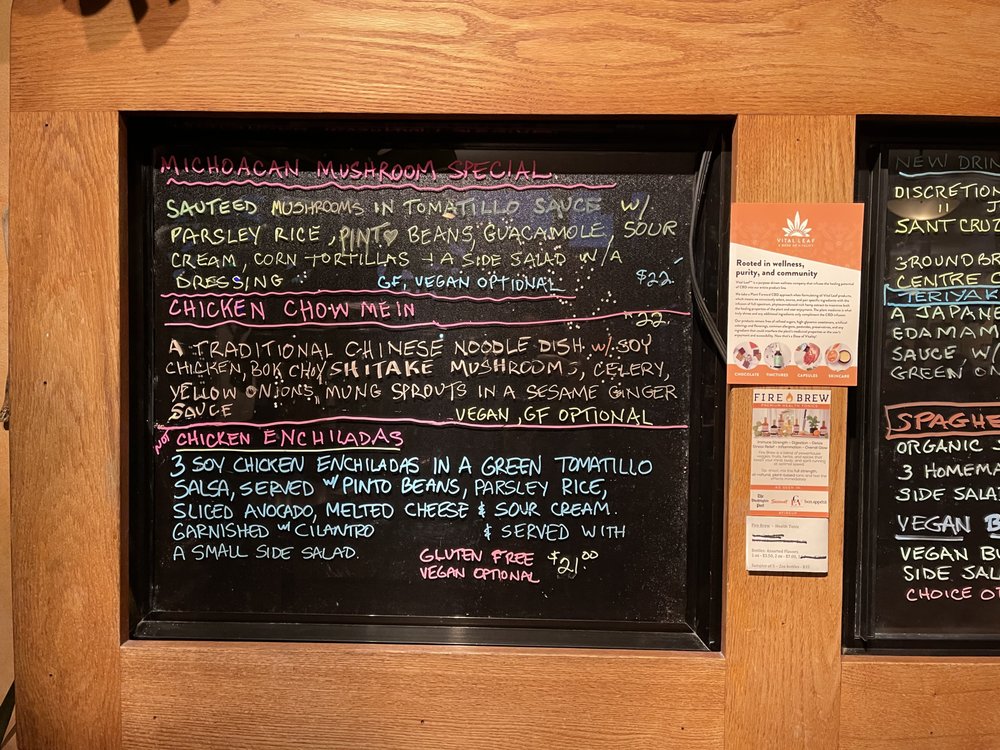 MICHOACAN MUSHROOM SPECIAL
SAUTEED MUSHROOMS IN TOMATILLO SAUCE W/
PARSLEY RICE, PINTO BEANS, GUACAMOLE, SOUR
CREAM, CORN TORTILLAS + A SIDE SALAD W/A
DRESSING GF, VEGAN OPTIONAL $22
CHICKEN CHOW MEIN $22
A TRADITIONAL CHINESE NOODLE DISH W/ SOY
CHICKEN, BOK CHOY SHITAKE MUSHROOMS, CELERY,
YELLOW ONIONS, MUNG SPROUTS IN A SESAME GINGER
SAUCE VEGAN, GF OPTIONAL
NOT CHICKEN ENCHILADAS
3 SOY CHICKEN ENCHILADAS IN A GREEN TOMATILLO
SALSA, SERVED W/ PINTO BEANS, PARSLEY RICE,
SLICED AVOCADO, MELTED CHEESE & SOUR CREAM.
GARNISHED W/ CILANTRO & SERVED WITH
A SMALL SIDE SALAD.
GLUTEN FREE
VEGAN OPTIONAL $21.00
VITAL LEAF
Rooted in wellness,
purity, and community
CHOCOLATE TINCTURES CAPSULES SKINCARE
FIRE BREW
PREMIUM HEALTH TONICS
Immune Strength - Digestion - Detox
Stress Relief - Inflammation - Overall Glow
AS SEEN IN
bon appétit
Fire Brew - Health Tonic
Bottles: Assorted Flavors
NEW DRIN
DISCRETION
" J
SANT CRUZ
GROUNDBR
CENTRE C
TERIYAK
A JAPANE
EDAMAM
SAUCE, W/
GREEN ON
SPAGHE
ORGANIC S
3 HOMEMA
SIDE SALA
VEGAN B
VEGAN BU
SIDE SAL
CHOICE OF